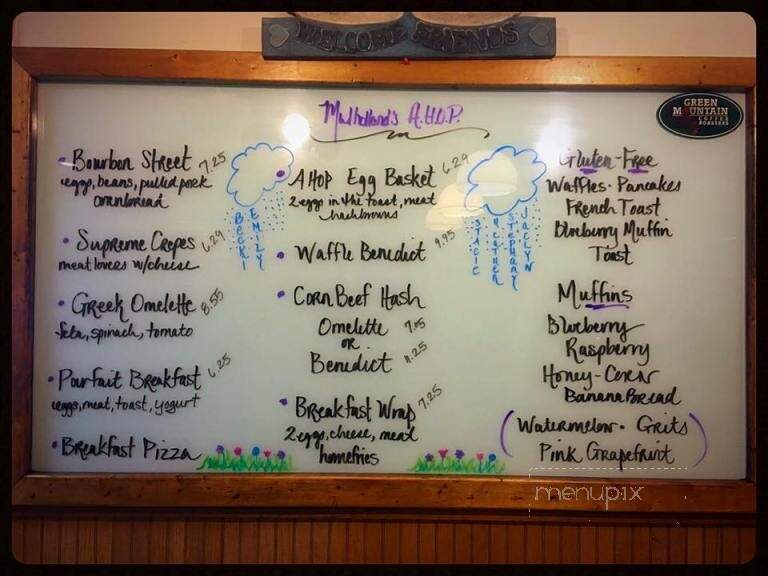 WELCOME FRIENDS
Mulholland's A.H.O.P.
GREEN
MOUNTAIN
COFFEE
ROASTERS
• Bourbon Street 7.25
eggs, beans, pulled pork
cornbread
• Supreme Crepes 6.29
meatlovers w/cheese
• Greek Omelette 8.55
feta, spinach, tomato
• Parfait Breakfast 6.25
eggs, meat, toast, yogurt
• Breakfast Pizza
BECKI
EMILY
• AHOP Egg Basket 6.29
2 eggs in the toast, meat
hashbrowns
• Waffle Benedict 9.95
• Corn Beef Hash
Omelette 7.05
or
Benedict 8.25
• Breakfast Wrap 7.25
2 eggs, cheese, meat
homefries
STACIE
HEATHER
STEPHANY
JACLYN
Gluten-Free
Waffles • Pancakes
French Toast
Blueberry Muffin
Toast
Muffins
Blueberry
Raspberry
Honey-Corn
Banana Bread
(Watermelon • Grits
Pink Grapefruit)
menupix